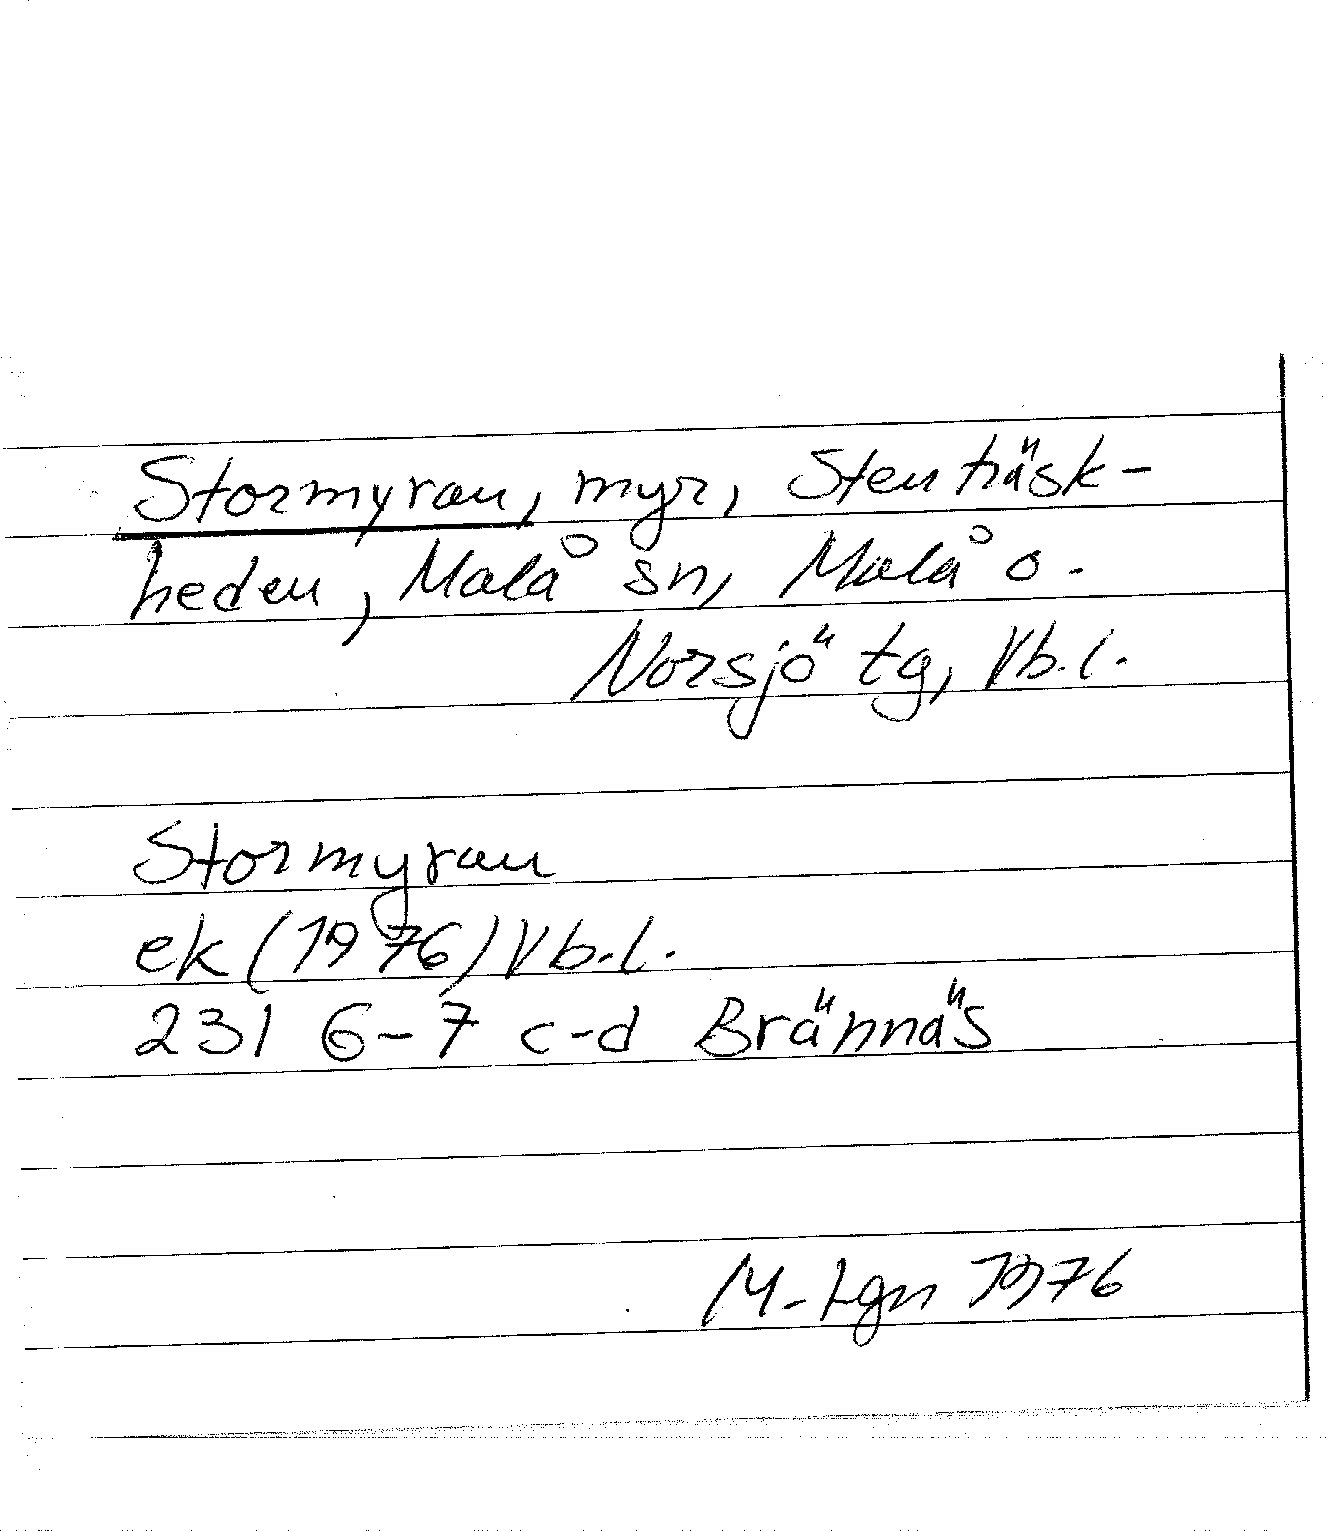 Stormyran, myr, Stenträsk-
heden, Malå sn, Malå o.
Norsjö tg, Vb.l.
Stormyran
ek (1976) Vb.l.
231 6-7 c-d Brännäs
M-Lgn 1976